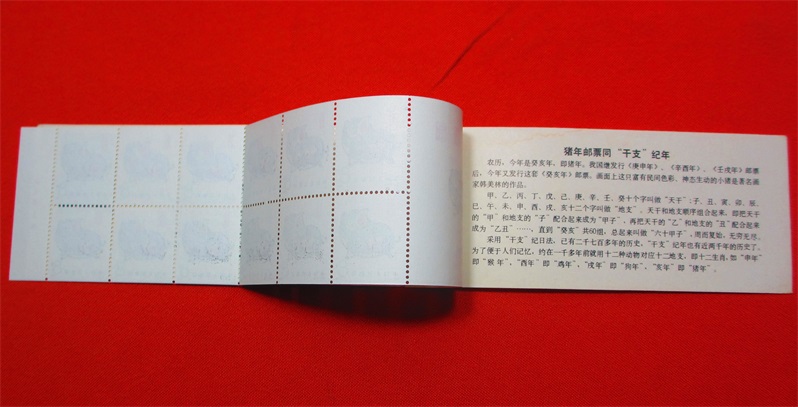 猪年邮票同“干支”纪年
农历，今年是癸亥年，即猪年。我国继发行《庚申年》、《辛酉年》、《壬戌年》邮票
后，今年又发行这套《癸亥年》邮票。画面上这只富有民间色彩、神态生动的小猪是著名画
家韩美林的作品。
甲、乙、丙、丁、戊、己、庚、辛、壬、癸十个字叫做“天干”；子、丑、寅、卯、辰、
巳、午、未、申、酉、戌、亥十二个字叫做“地支”。天干和地支顺序组合起来，即把天干
的“甲”和地支的“子”配合起来成为“甲子”，再把天干的“乙”和地支的“丑”配合起来
成为“乙丑”……，直到“癸亥”共60组，总起来叫做“六十甲子”，周而复始，无穷无尽。
采用“干支”纪日法，已有二千七百多年的历史，“干支”纪年也有近两千年的历史了。
为了便于人们记忆，约在一千多年前就用十二种动物对应十二地支，即十二生肖，如“申年”
即“猴年”，“酉年”即“鸡年”，“戌年”即“狗年”，“亥年”即“猪年”。